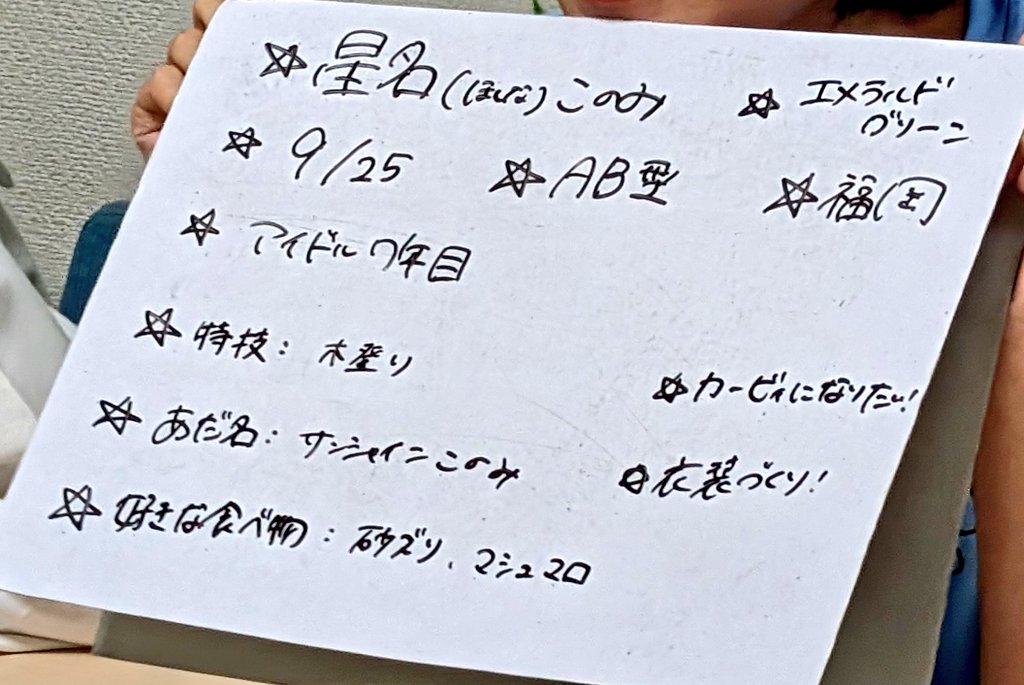 ☆星名(ほしな)このみ ☆エメラルド
グリーン
☆ 9/25 ☆AB型 ☆福岡
☆ アイドル7年目
☆特技: 木登り
☆カービィになりたい!
☆あだ名: サンシャインこのみ
☆衣装づくり!
☆好きな食べ物: 砂ズリ、マシュマロ